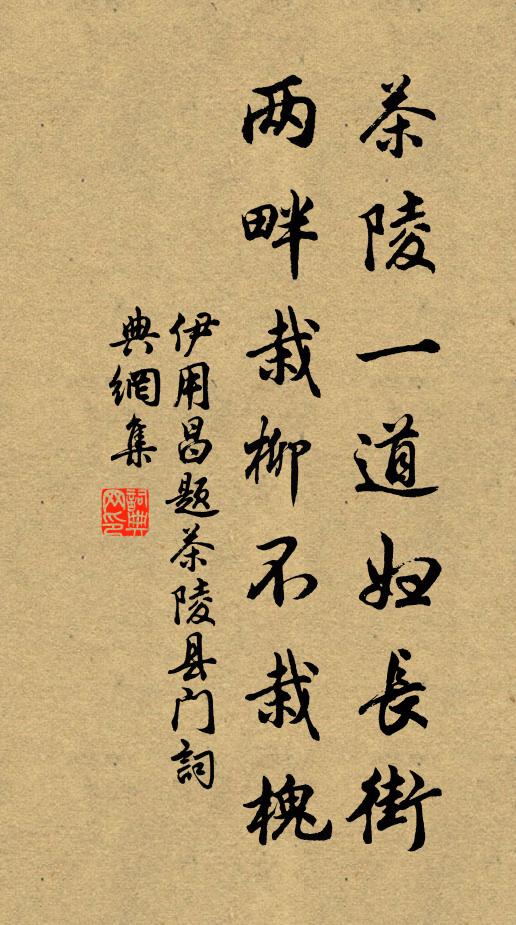 茶陵一道妞長街
两畔栽柳不栽槐
伊用昌题茶陵县门詞
典網集
詞典网印